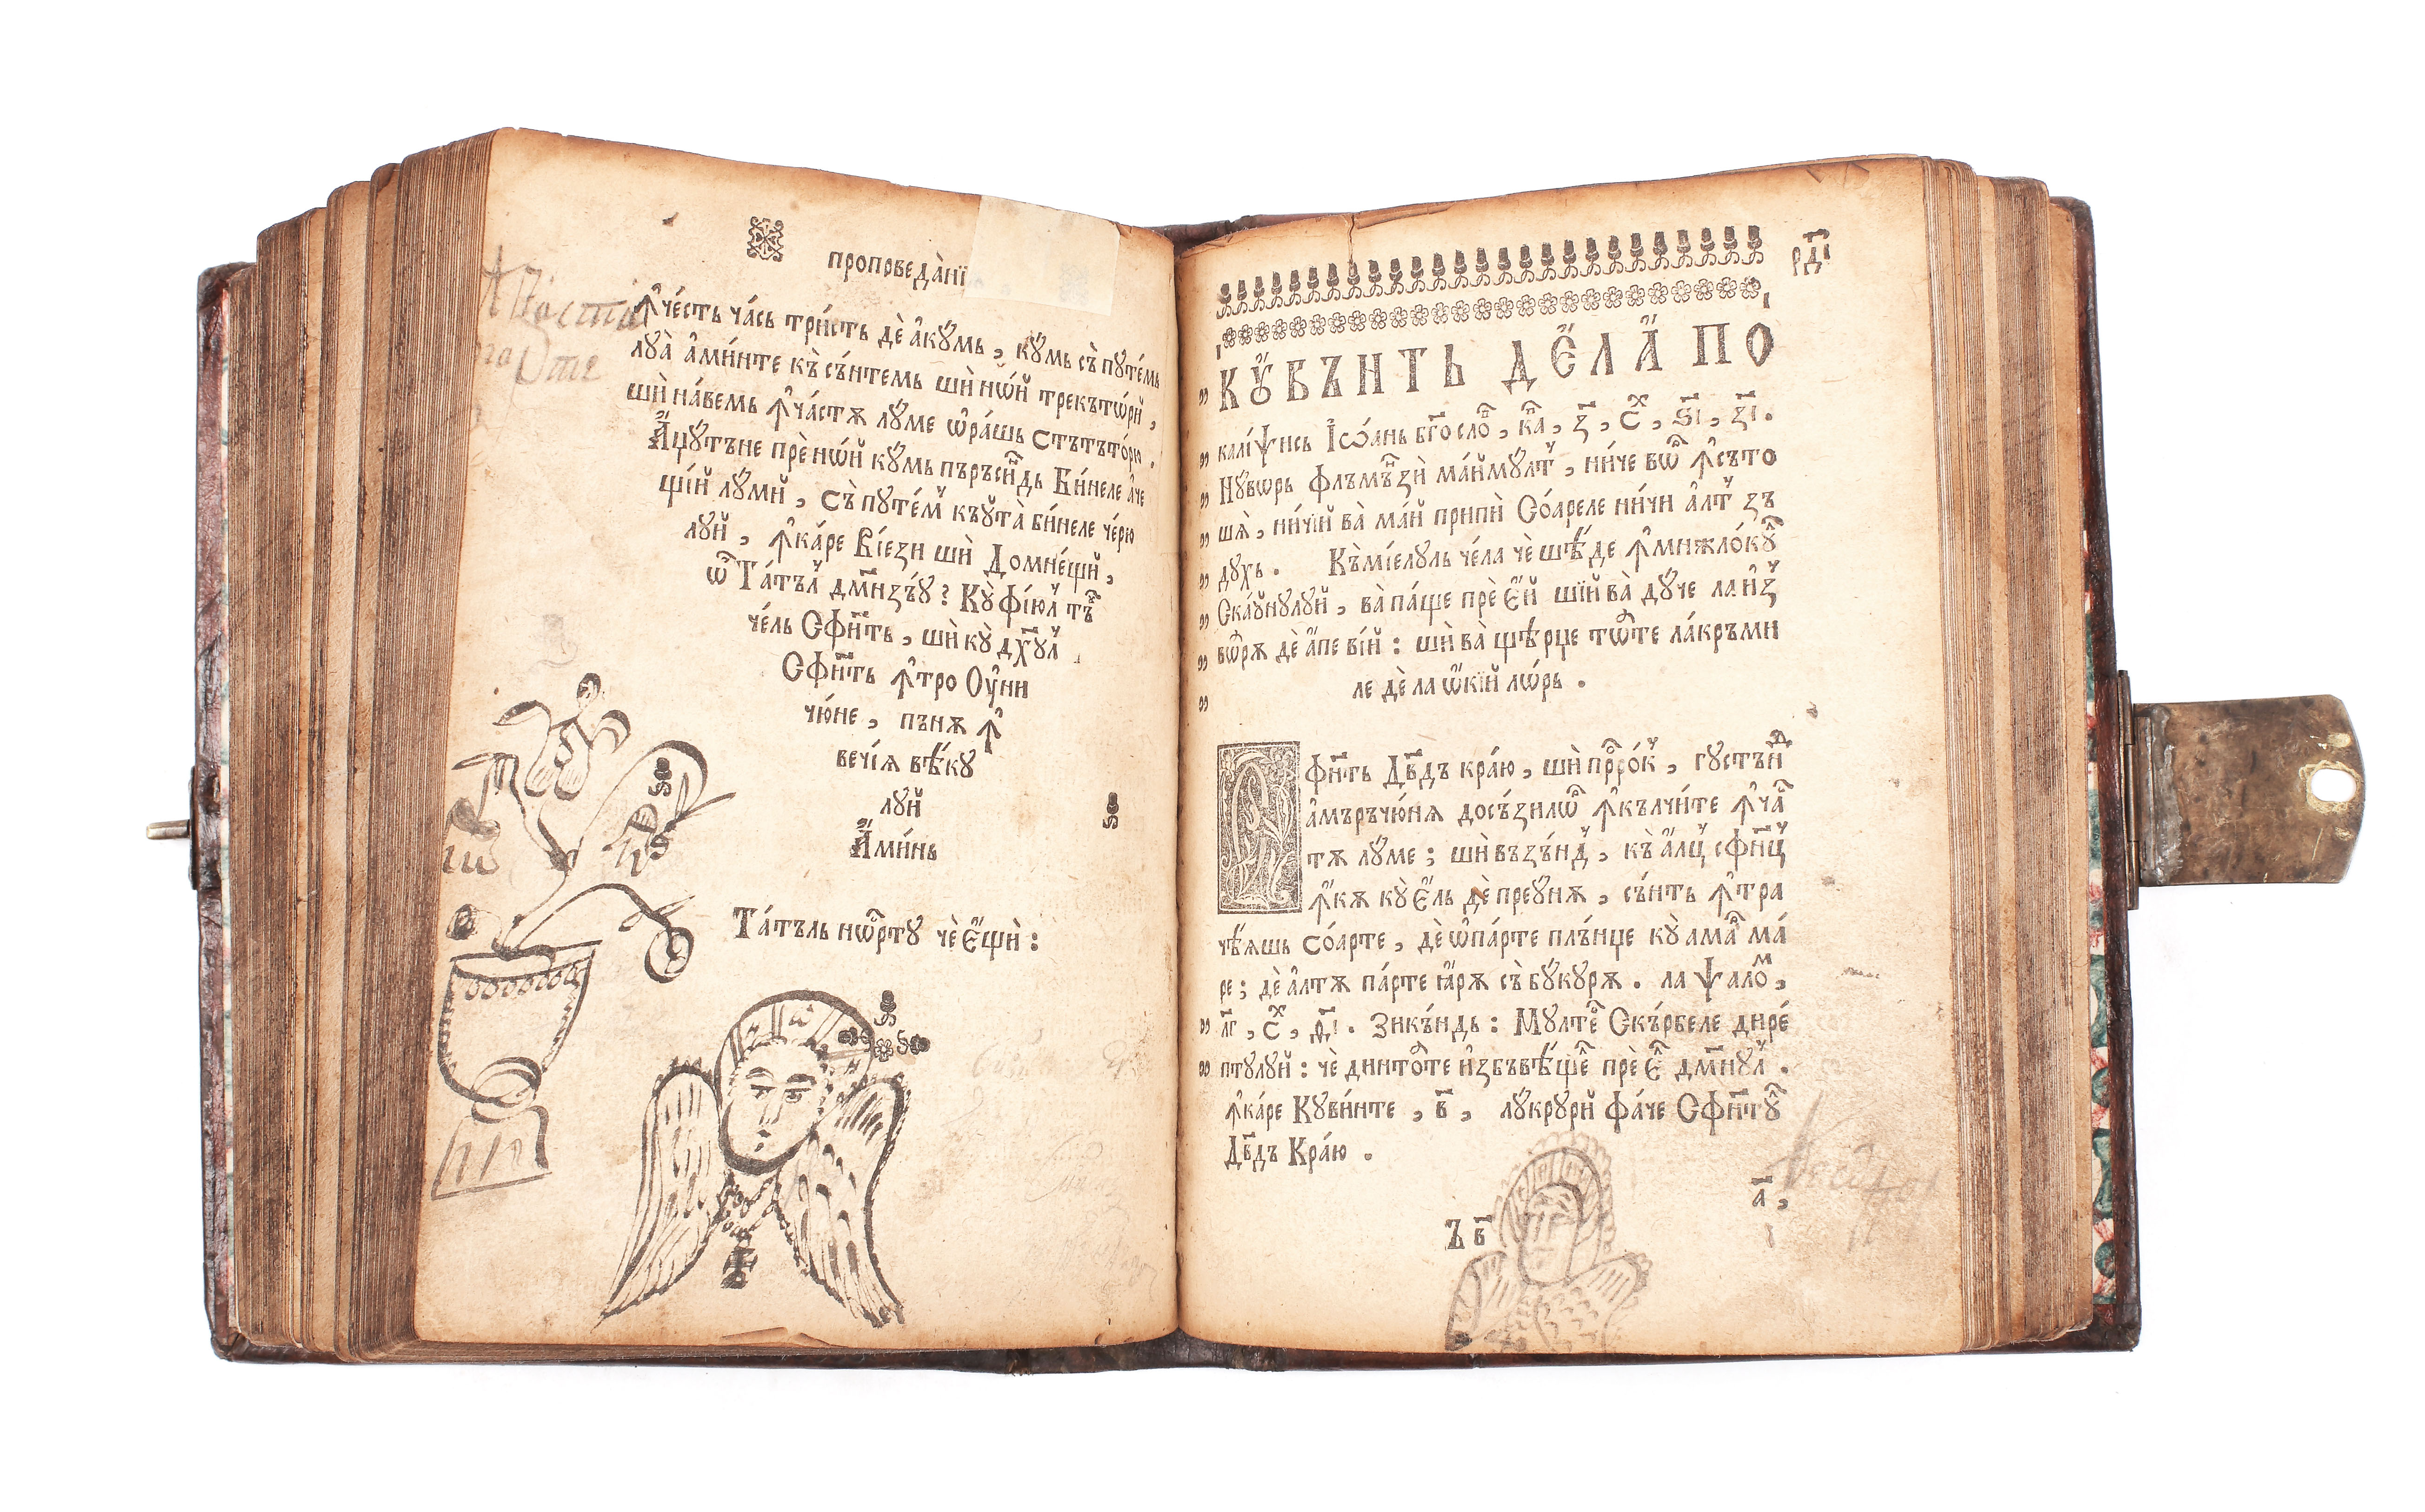 пропрведа̀нїй
Ꙟче́сть ча́сь три́сть дѐ акꙋ́мь, кꙋ́мь съ̀ пꙋте́мь
лꙋа̀ ами́нте къ̀ сꙋ́нтемь шѝ нѡ́й трекътѡ́рй,
шѝ на́вемь ꙟча́стѫ лꙋ́ме ѡра́шь стътъто́рю.
А҆цꙋтъне прѐ нѡ́й кꙋмь пъръсин҇дь Би́неле аче
щїй лꙋмй, съ̀ пꙋте́м къꙋта̀ би́неле че́рю
лꙋй, ꙟка́ре Вїези шѝ Домне́щй,
ѿ Та́тъл дм҃незъ́ꙋ? Кꙋ̀ фі́юл тъ̑
че́ль Сфн҃ть, шѝ кꙋ̀ дх҃ꙋл
Сфн҃ть ꙟтро Оу҆ни
чю́не, пънѫ ꙟ
вечі́ѧ вѣ́кꙋ
лꙋй
А҆ми́нь
Та́тъль нѡстрꙋ чѐ є҆щѝ:
рд҃і
КꙊВЪНТЬ ДЕЛА ПО
калі́ѱись І҆ѡа́нь бг҃осло҇, к҃а, з҃, с҇х, ѕ҃і, з҃і.
Нꙋворь флъмъ҇нзѝ ма́ймꙋлт, ни́че во҇ ꙟсъто
шѧ̀, ни́чїй ва̀ ма́й припѝ Со́ареле ни́чи а҆лт зъ
дꙋхь. Къ̀ мїелꙋль че́ла чѐ шѣ́де ꙟмижло́кꙋ
Ска́ꙋнꙋлꙋй, ва̀ па́ще прѐ є҆й шїй ва̀ дꙋ́че ла и҆з
вѡ҇рѫ дѐ а҆пе ві́й: шѝ ва̀ щѣ́рце тѡте ла́кръми
ле дѐ ла ѡ҆кїй лѡ́рь.
Сфн҃ть Дв҃дъ кра́ю, шѝ прⷪ҇ро́к, гꙋстъ́нд
а҆мъръчю́нѧ досъ́зилѡ҇ ꙟкълчи́те ꙟча҇
тѫ лꙋ́ме; шѝ възъ́нд, къ̀ а҆лц сфн҃ц
ꙟкѫ кꙋ̀ є҆ль дѐпреꙋ́нѫ, съ́нть ꙟтра
чѣ́ѧшь со́арте, дѐ ѡ҆па́рте плъ́нце кꙋ̀ ама҇ ма́
ре; дѐ а҆лтѫ па́рте ꙗ҆рѫ съ̀ бꙋ́кꙋрѫ. ла ѱало҇м,
л҃г, с҇х, р҃і. Зикъ́ндь: Мꙋлте҇ Скъ́рбеле дире́
птꙋлꙋй: чѐ динто҇те и҆збъвѣ́ще҇ прѐ є҇ дм҃нꙋл.
ꙟка́ре Кꙋви́нте, в҃, лꙋ́крꙋрй фа́че Сфн҃тꙋ҇
Дв҃дъ Кра́ю.
а҃,
Ъ в҃